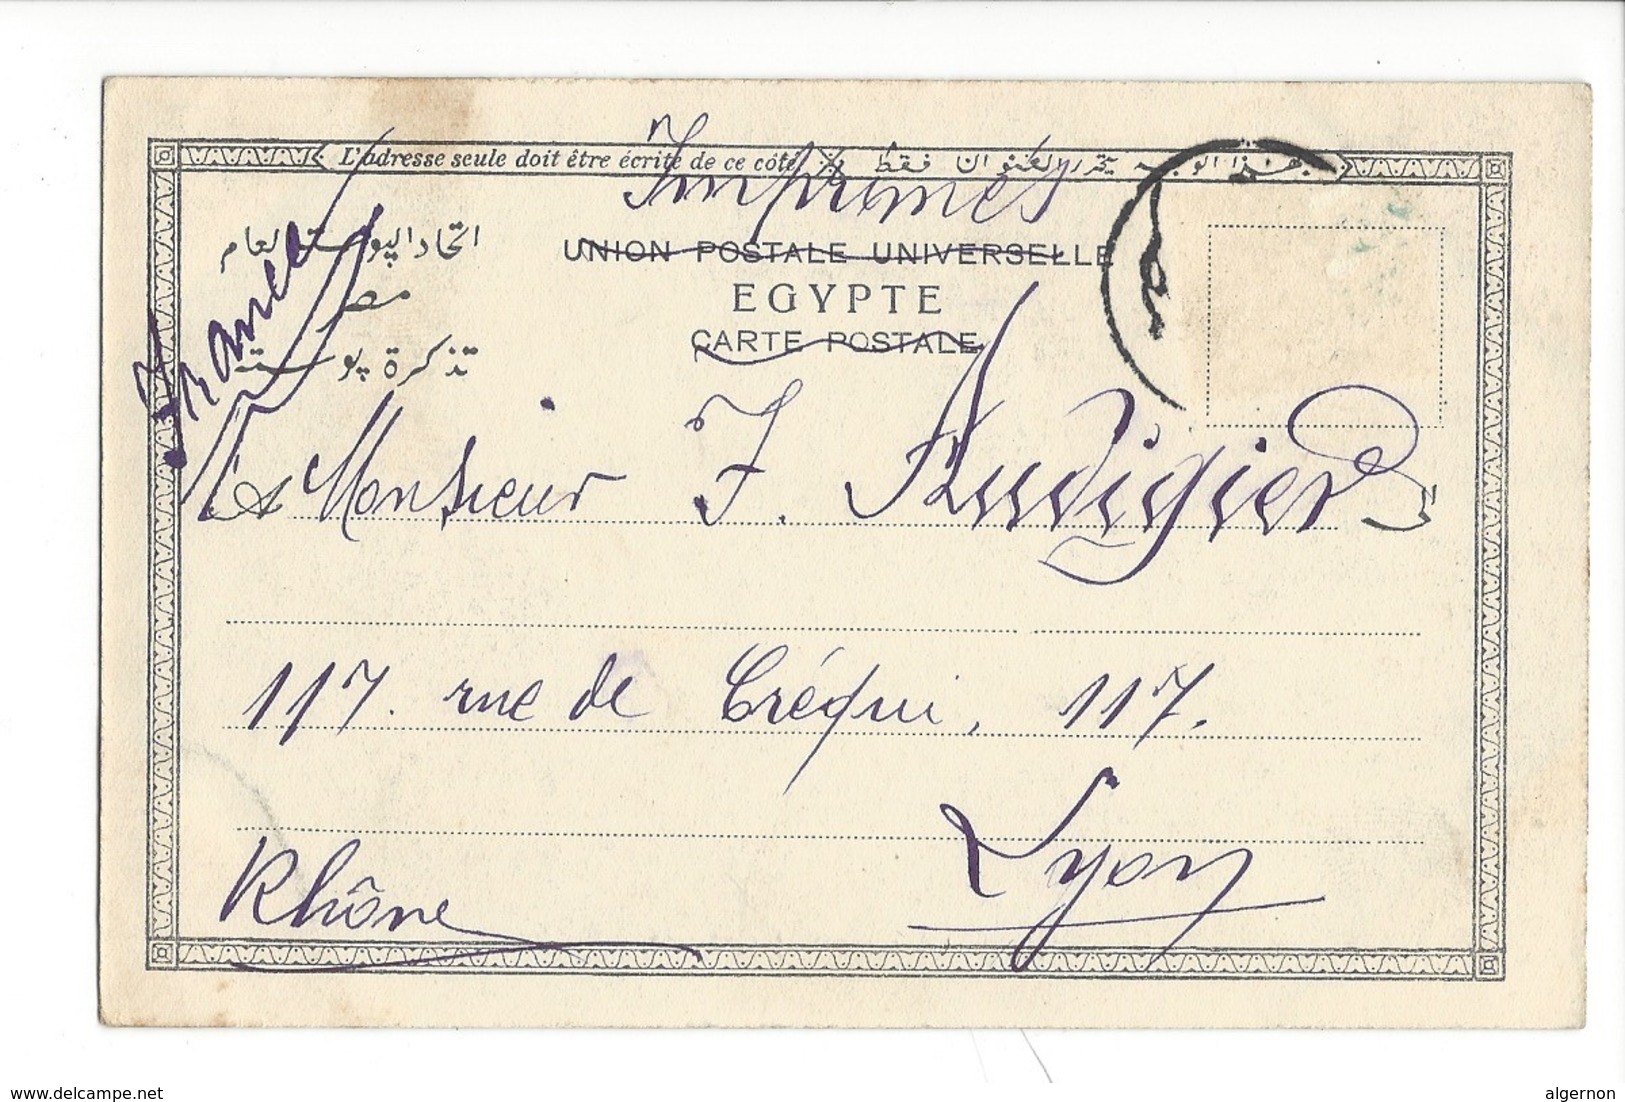 L'adresse seule doit être écrite de ce côté
Imprimés
اتحاد البوستة العام
مصر
تذكرة پوستة
UNION POSTALE UNIVERSELLE
EGYPTE
CARTE POSTALE
France
A Monsieur J. Audigier
117. rue de Créqui, 117.
Lyon
Rhône
www.delcampe.net
algernon